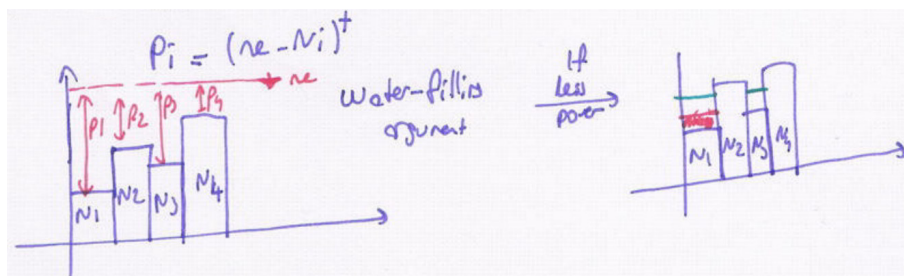 Pi = (ve - Ni)⁺
ve
P1 P2 P3 P4
N1 N2 N3 N4
Water-filling
argument
If
Less
power
N1 N2 N3 N4